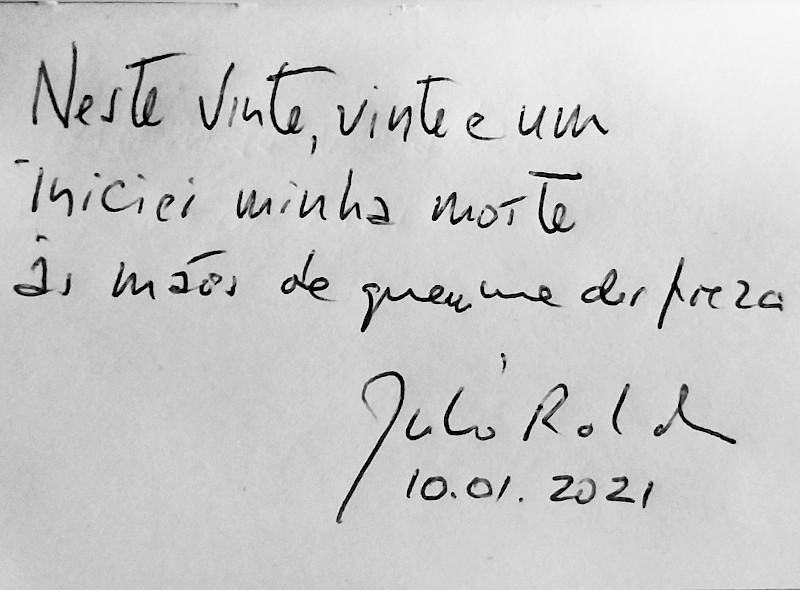 Neste vinte, vinte e um
iniciei minha morte
às mãos de quem me despreza
Júlio Rold
10.01.2021